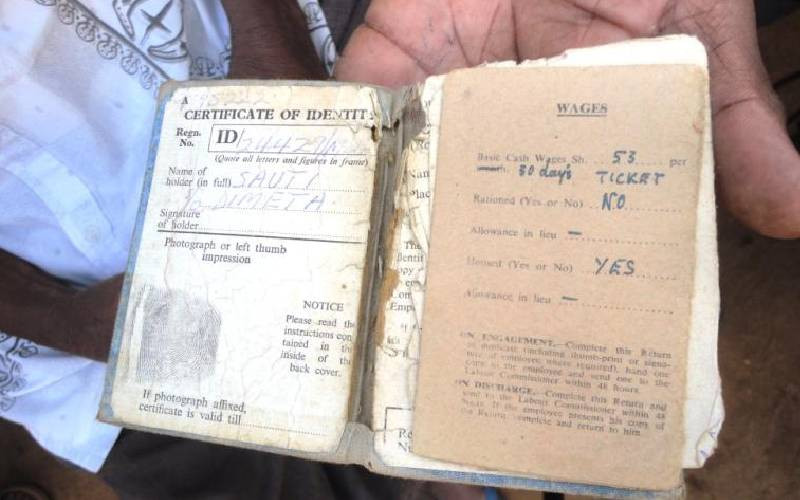 A
CERTIFICATE OF IDENTIT
Regn. No. ID/
(Quote all letters and figures in frame)
Name of
holder (in full) SAUTI
DIMETA
Signature
of holder
Photograph or left thumb
impression
NOTICE
Please read the
instructions con
tained in the
inside of the
back cover.
If photograph affixed,
certificate is valid till
The
WAGES
Basic Cash Wages Sh. 53 per
30 days TICKET
Rationed (Yes or No) NO
Allowance in lieu —
Housed (Yes or No) YES
Allowance in lieu —
ON ENGAGEMENT.—Complete this Return
in duplicate (including thumb-print or signa-
ture of employee where required), hand one
copy to the employee and send one to the
Labour Commissioner within 48 hours.
ON DISCHARGE.—Complete this Return and
send to the Labour Commissioner within 48
hours. If the employee presents his copy of
the Return, complete and return to him.